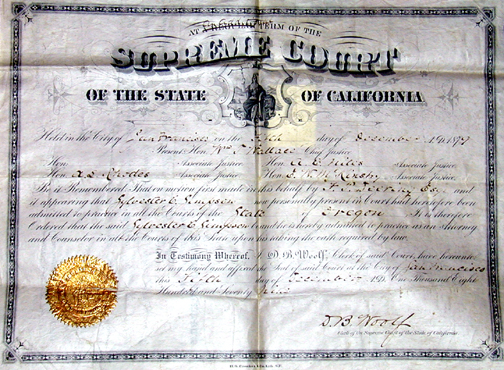 AT A REGULAR TERM OF THE
SUPREME COURT
OF THE STATE OF CALIFORNIA
Held in the City of San Francisco on the day of December
Present: Hon. Wm. T. Wallace Chief Justice
Hon. Associate Justice Hon. A. C. Niles Associate Justice
Hon. A. L. Rhodes Associate Justice Hon. Associate Justice
Be it Remembered, That on motion first made in this behalf by Esq. and
it appearing that Sylvester C. Simpson now personally present in Court had heretofore been
admitted to practice in all the Courts of the State of Oregon It is therefore
Ordered that the said Sylvester C. Simpson be and he is hereby admitted to practice as an Attorney
and Counselor in all the Courts of this State upon his taking the oath required by law.
In Testimony Whereof, I, D. B. Woolf, Clerk of said Court, have hereunto
set my hand and affixed the Seal of said Court at the City of San Francisco
this day of December A.D. One Thousand Eight
Hundred and Seventy
D. B. Woolf
Clerk of the Supreme Court of the State of California